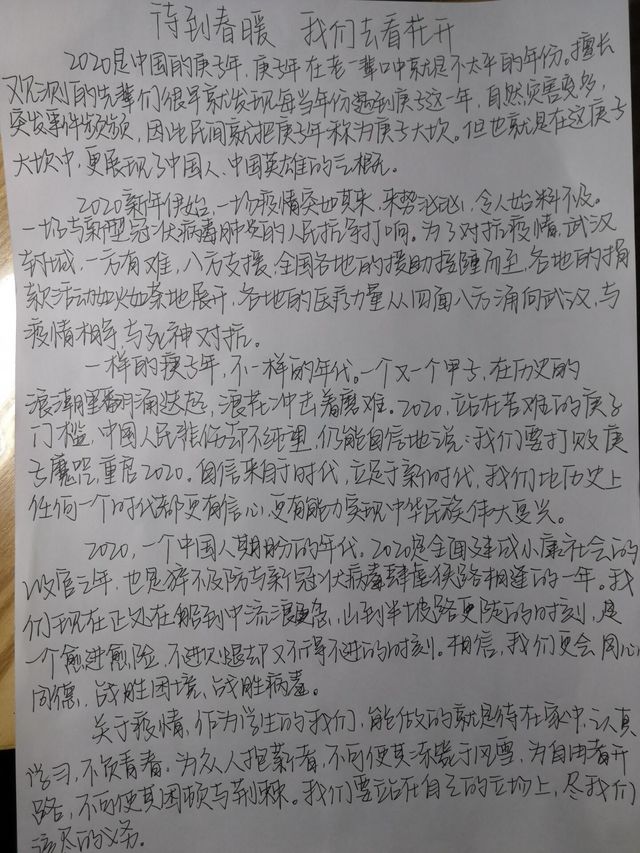 待到春暖 我们去看花开
2020是中国的庚子年,庚子年在老一辈口中就是不太平的年份。擅长
观测的先辈们很早就发现每当年份遇到庚子这一年,自然灾害变多,
突发事件频频,因此民间就把庚子年称为庚子大坎。但也就是在这庚子
大坎中,更展现了中国人、中国英雄的气概。
2020新年伊始,一场疫情突如其来,来势汹汹,令人始料不及。
一场与新型冠状病毒肺炎的人民抗争打响。为了对抗疫情,武汉
封城,一方有难,八方支援,全国各地的援助接踵而至,各地的捐
款活动如火如荼地展开,各地的医疗力量从四面八方涌向武汉,与
疫情相争,与死神对抗。
一样的庚子年,不一样的年代。一个又一个甲子,在历史的
浪潮里翻涌迭起,浪花冲击着磨难。2020,站在苦难的庚子
门槛,中国人民悲伤却不绝望,仍能自信地说:我们要打败庚
子魔咒,重启2020。自信来自于时代,立足于新时代,我们比历史上
任何一个时代都更有信心、更有能力实现中华民族伟大复兴。
2020,一个中国人期盼的年代。2020是全面建成小康社会的
收官之年,也是猝不及防与新冠状病毒肆虐狭路相逢的一年。我
们现在正处在船到中流浪更急、山到半坡路更陡的时刻,是
一个愈进愈险、不进则退却又不得不进的时刻。相信,我们更会同心
同德,战胜困境、战胜病毒。
关于疫情,作为学生的我们,能做的就是待在家中,认真
学习,不负青春。为众人抱薪者,不可使其冻毙于风雪,为自由者开
路,不可使其困顿与荆棘。我们要站在自己的立场上,尽我们
该尽的义务。